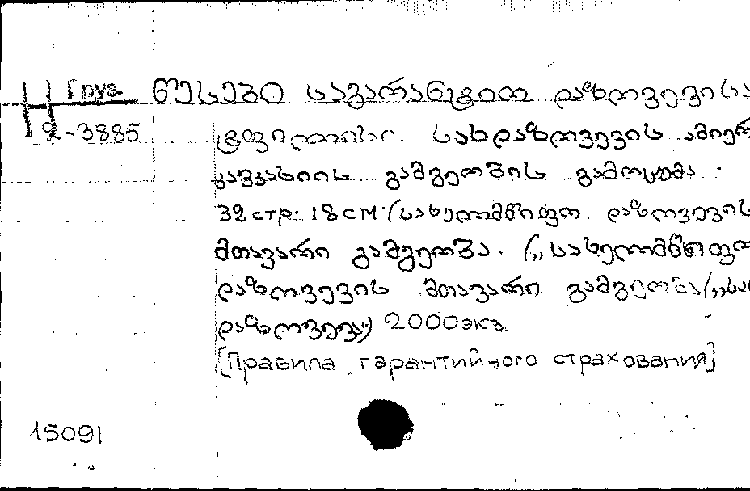 Н Груз. წესები საგარანტიო დაზღვევისა
2-3885 ტფილისი. სახდაზღვევის ამიერ
კავკასიის გამგეობის გამოცემა.
32 стр. 18 см. (სახელმწიფო დაზღვევის
მთავარი გამგეობა. („სახელმწიფო
დაზღვევის მთავარი გამგეობა („სა
დაზღვევა) 2000 экз.
[Правила гарантийного страхования]
15091